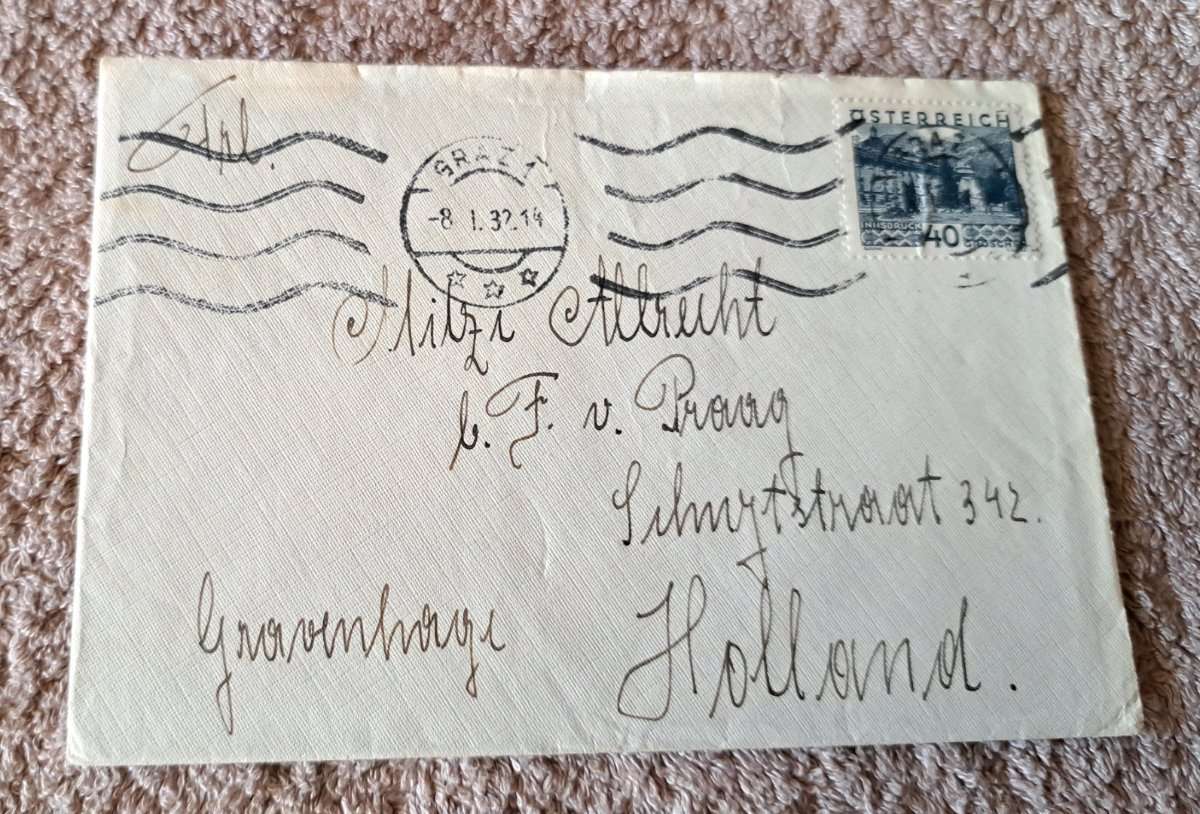 Frl.
GRAZ 1
-8.I.32.14
ÖSTERREICH
INNSBRUCK
40 GROSCHEN
Mitzi Albrecht
b. F. v. Praag
Schuytstraat 342.
Gravenhage
Holland.